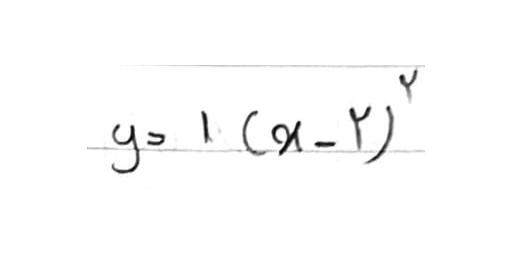 y = ۱ (x - ۲)^۲